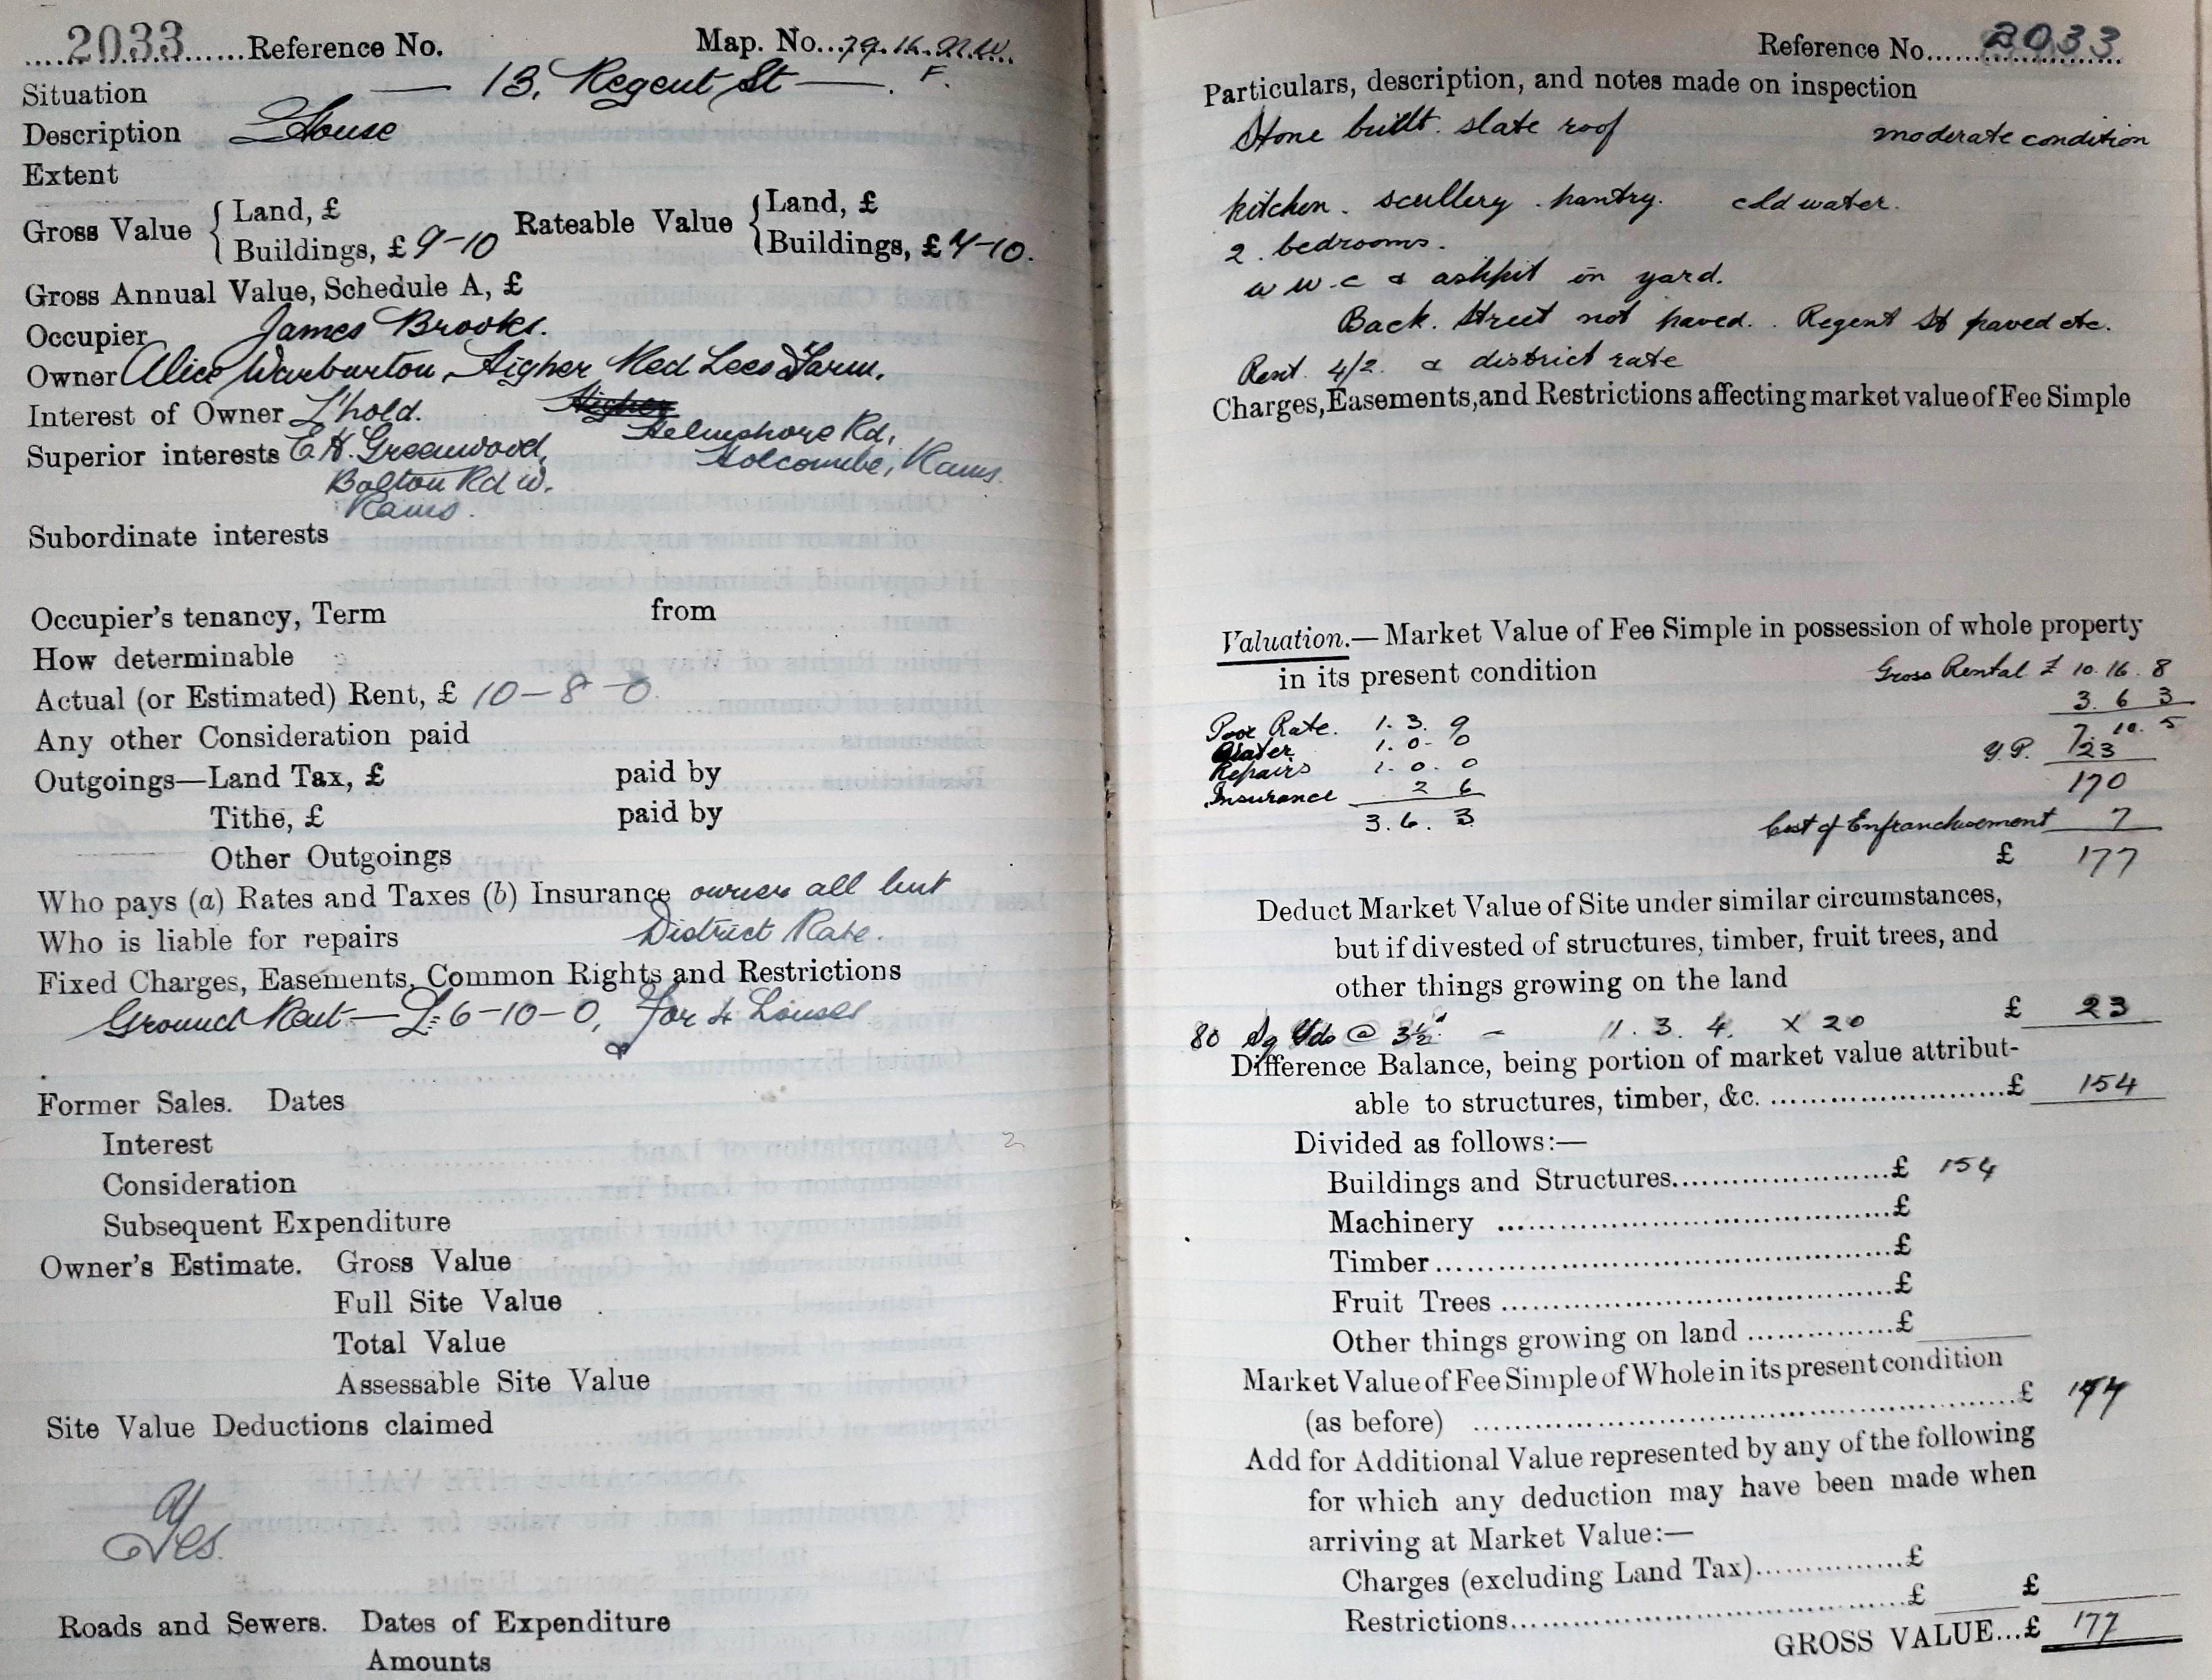 2033 Reference No. Map. No. 79.16. N.W.
F.
Situation — 13, Regent St —.
Description House
Extent
Gross Value { Land, £ Rateable Value { Land, £
Buildings, £ 9-10 Buildings, £ 7-10.
Gross Annual Value, Schedule A, £
Occupier James Brooks.
Owner Alice Warburton, Higher Red Lees Farm.
Interest of Owner L'hold. Higher
Helmshore Rd,
Superior interests E H. Greenwood, Holcombe, Rams.
Bolton Rd W.
Rams.
Subordinate interests
Occupier's tenancy, Term from
How determinable
Actual (or Estimated) Rent, £ 10-8-0
Any other Consideration paid
Outgoings—Land Tax, £ paid by
Tithe, £ paid by
Other Outgoings
Who pays (a) Rates and Taxes (b) Insurance owner all but
Who is liable for repairs District Rate.
Fixed Charges, Easements, Common Rights and Restrictions
Ground Rent — £6-10-0, for 4 Houses
Former Sales. Dates
Interest
Consideration
Subsequent Expenditure
Owner's Estimate. Gross Value
Full Site Value
Total Value
Assessable Site Value
Site Value Deductions claimed
Yes.
Roads and Sewers. Dates of Expenditure
Amounts
Reference No. 2033
Particulars, description, and notes made on inspection
Stone built. slate roof moderate condition
kitchen. scullery. pantry. cold water.
2. bedrooms.
w w.c & ashpit in yard.
Back. Street not paved.. Regent St paved etc.
Rent. 4/2. & district rate
Charges, Easements, and Restrictions affecting market value of Fee Simple
Valuation.—Market Value of Fee Simple in possession of whole property
in its present condition Gross Rental £ 10. 16. 8
3. 6 3
Poor Rate. 1. 3. 9 7. 10. 5
Water 1. 0- 0 Y.P. 23
Repairs 1. 0. 0
Insurance 2 6 170
3. 6. 3 Cost of Enfranchisement 7
£ 177
Deduct Market Value of Site under similar circumstances,
but if divested of structures, timber, fruit trees, and
other things growing on the land
80 Sq Yds @ 3½d - 1. 3. 4. X 20 £ 23
Difference Balance, being portion of market value attribut-
able to structures, timber, &c. £ 154
Divided as follows:—
Buildings and Structures £ 154
Machinery £
Timber £
Fruit Trees £
Other things growing on land £
Market Value of Fee Simple of Whole in its present condition
(as before) £ 177
Add for Additional Value represented by any of the following
for which any deduction may have been made when
arriving at Market Value:—
Charges (excluding Land Tax) £
Restrictions £ £
GROSS VALUE...£ 177